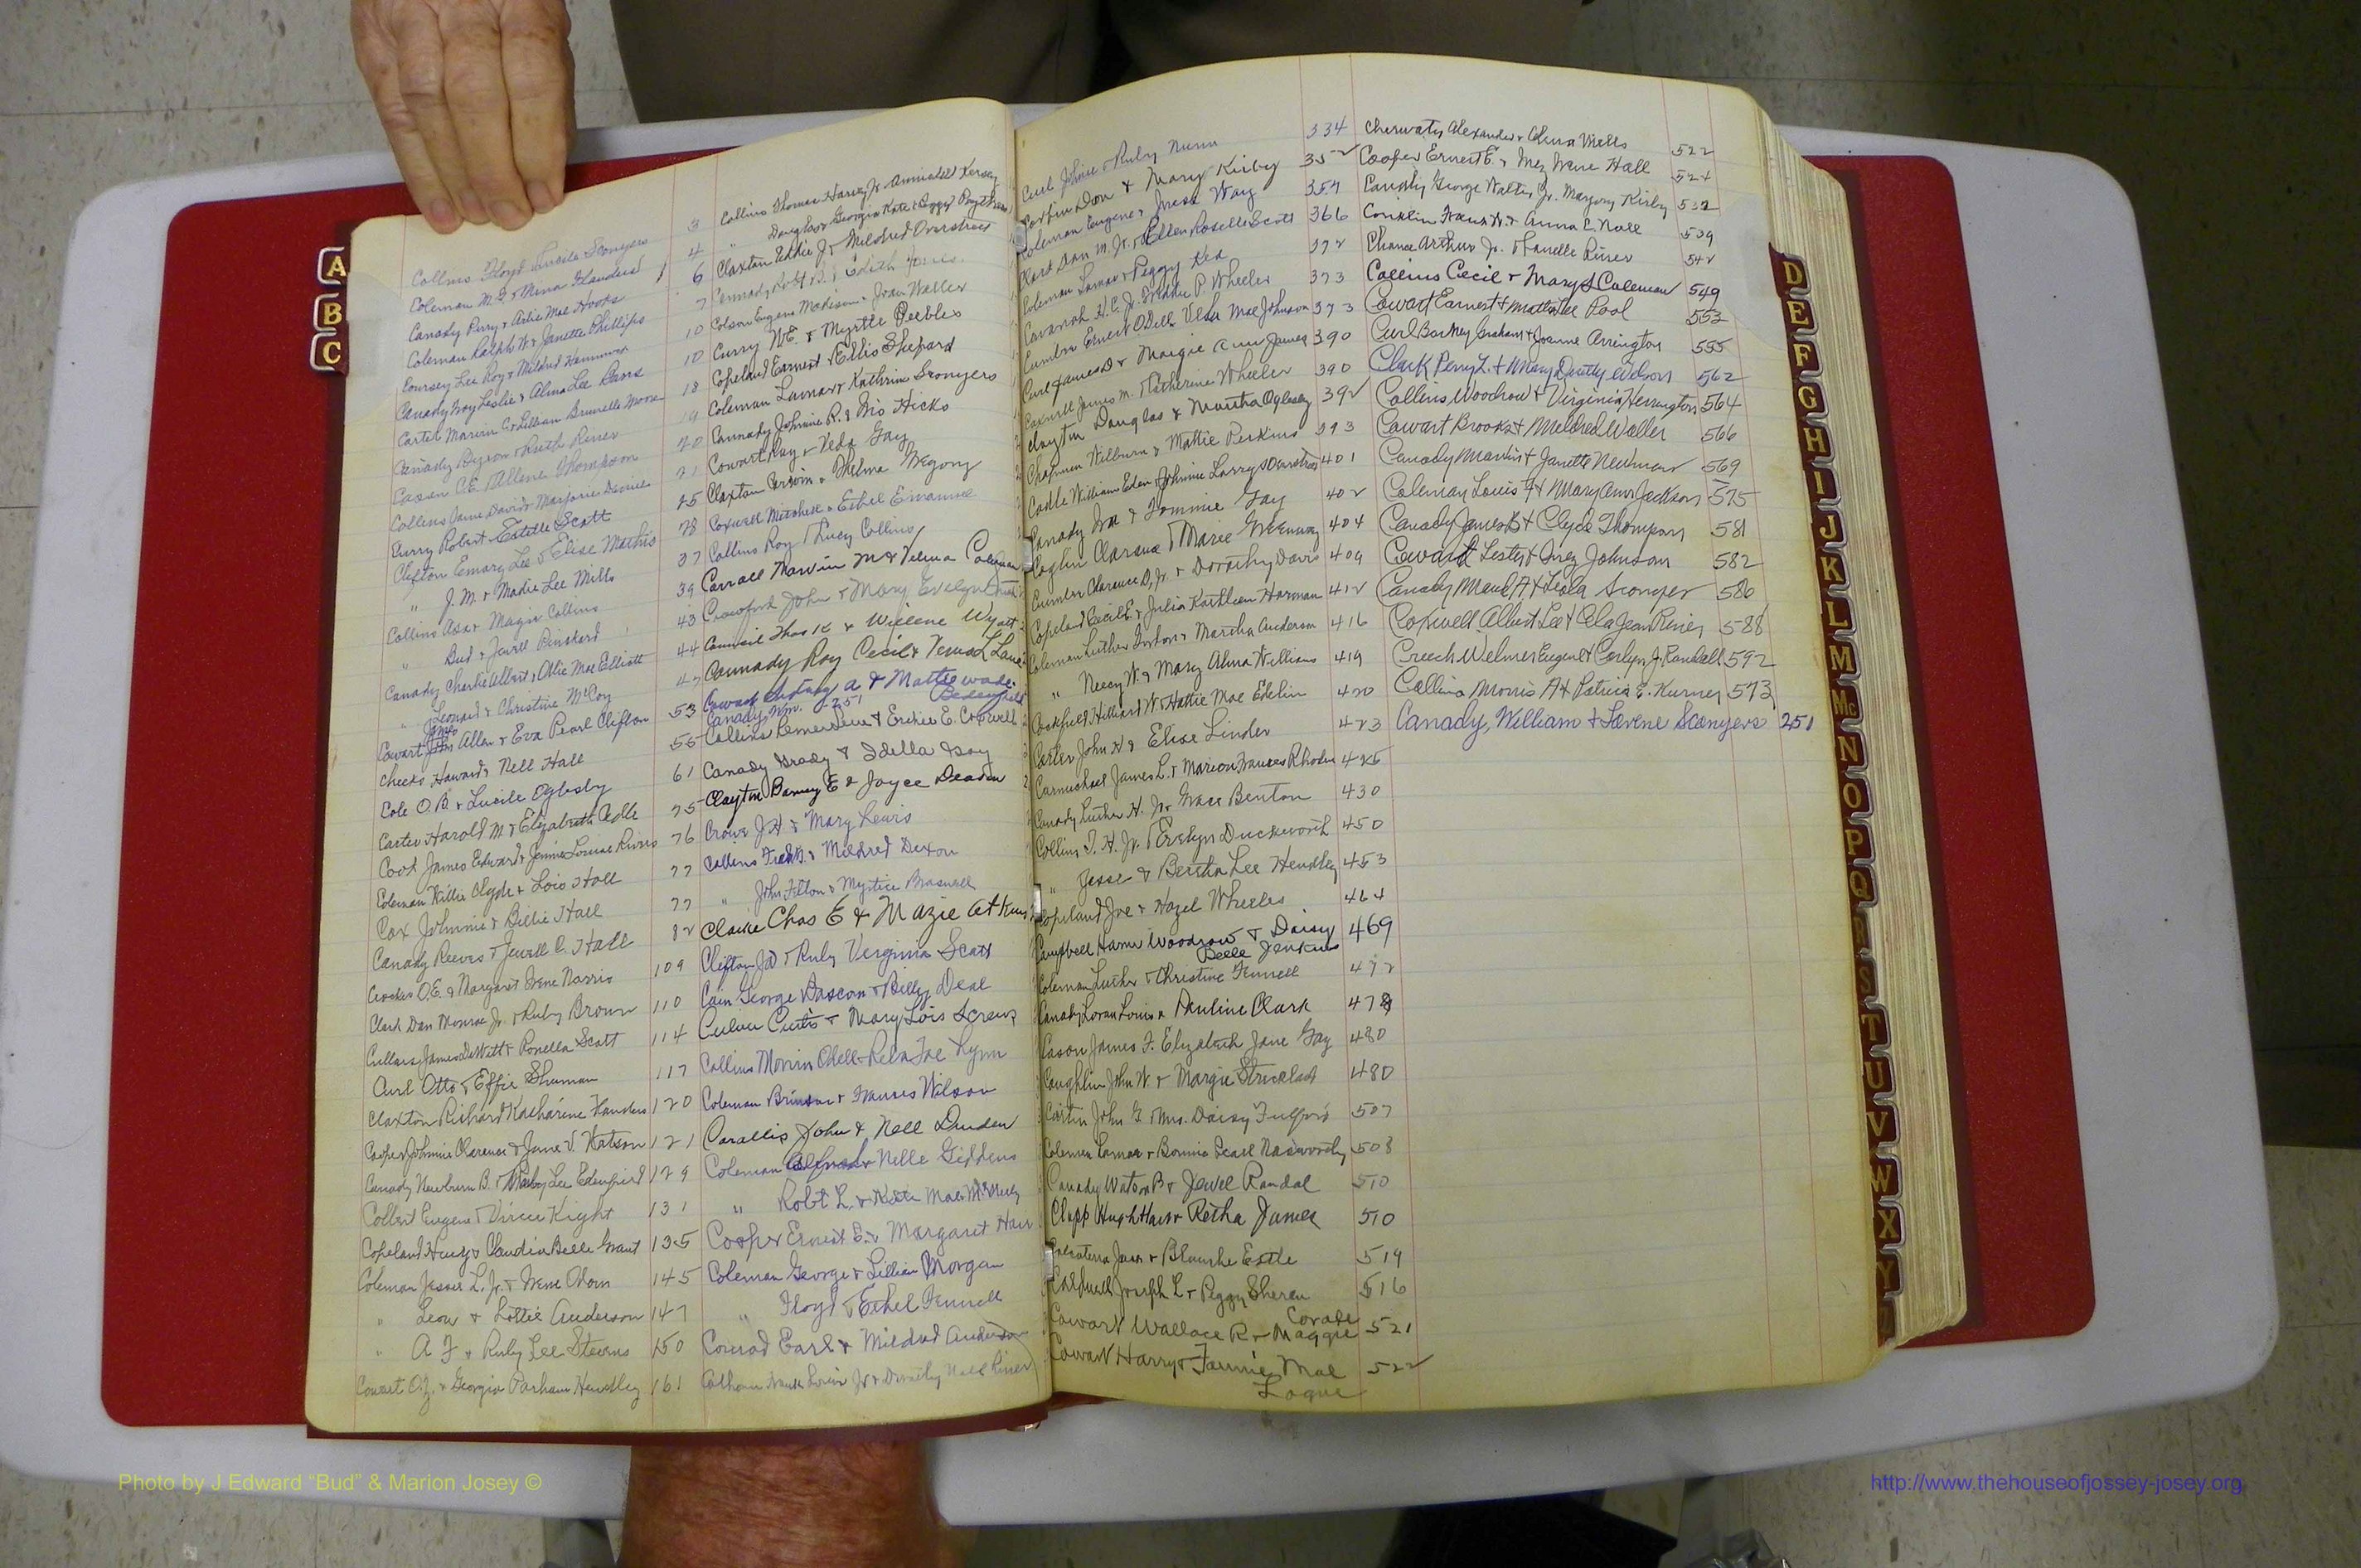 A
B
C
Collins Floyd Lucile Scongers 3
Coleman M. F. & Mena Flanders 4
Canady Perry & Arlie Mae Hooks 6
Coleman Ralph W. & Janette Phillips 7
Coursey Lee Roy & Mildred 10
Canady Leslie & Alma Lee 10
Carter Marvin & Lillian Brunelle Moore 18
Canady Byron & Ruth Riner 19
Cason C.E. & Allene Thompson 20
Collins Jame David & Marjorie 21
Curry Robert Estelle Scott 25
Clifton Emory Lee & Elise Mathis 28
" J. M. & Madie Lee Mills 37
Collins Asa & Maggie Collins 39
" Bud & Jewell 43
Canady Charlie Albert & Allie Mae Elliott 44
" Leonard & Christine McCoy
Cowart James Allen & Eva Pearl Clifton 53
Cheeks Howard & Nell Hall 55
Cole O.B. & Lucile Oglesby 61
Carter Harold M & Elizabeth Cadle 75
Cook James Edward & Jennie Louise Rivers 76
Coleman Willie Clyde & Lois Hall 77
Cox Johnnie & Billie Hall 77
Canady Reeves & Jewell C. Hall 82
O.E. & Margaret Irene Norris 109
Clark Dan Monroe Jr. & Ruby Brown 110
James DeWitt & Ronella Scott 114
Curl Otto & Effie Shuman 117
Claxton Richard Katharine Flanders 120
Cooper Johnnie Clarence & Jane V. Watson 121
Canady Newburn B. & Mary Lee Edenfield 129
Colbert Eugene & Kight 131
Copeland Henry & Claudia Belle Grant 135
Coleman Jessie L. Jr. & Irene Odom 145
" Leon & Lottie Anderson 147
" A F & Ruby Lee Stevens 150
Cowart O.Z. & Georgia Parham Hendley 161
Collins Thomas Harvey Jr. Annabell Kersey
" Douglas & Georgia Kate
Claxton Eddie Jr. & Mildred Overstreet
Cannady Robt B. & Edith Jones
Colson Eugene Madison & Joan Waller
Curry W.E. & Myrtle Peebles
Copeland Earnest & Ellis Shepard
Coleman Lamar & Kathrine Scongers
Cannady Johnnie R. & Iris Hicks
Cowart Ray & Veda Gay
Claxton Corwin & Thelma McGony
Coxwell Mitchell & Ethel Emanuel
Collins Roy & Lucy Collins
Carroll Marvin M & Velma Coleman
Crawford John & Mary Evelyn
Council Thos K & Willene Wyatt
Cannady Roy Cecil &
Cowart A & Mattie wade
Canady, Wm. 251
Collins & Erchie E. Coxwell
Canady Grady & Idella Gay
Clayton Barney E & Joyce Deason
Crowe J.H & Mary Lewis
Collins Fred B. & Mildred Dixon
" John Filton & Myrtice Braswell
Clarke Chas E & Mazie Atkins
Clifton J.D & Ruby Verginia Scott
Cain George Dascon & Billy Deal
Culver Curtis & Mary Lois Screws
Collins Odell & Fae Lynn
Coleman Brinson & Frances Wilson
Carallis John & Nell Durden
Coleman Alfred & Nelle Giddens
" Robt L. &
Cooper Ernest E. & Margaret Hair
Coleman George & Lillian Morgan
" Floyd & Ethel Fennell
Conrad Earl & Mildred Anderson
Calhoun Frank Jr & Dorothy Nell Riner
Curl Johnie & Ruby Nunn 334
Corbin Don & Mary Kirby 352
Coleman Eugene & Way 359
Clark Dan M. Jr. & Ellen Roselle Scott 366
Coleman Lamar & Peggy Kea 372
Cavanah H.C. Jr. P Wheeler 373
Cumbie Ernest Odell Velda Mae Johnson 373
Curl James D & Margie Ann James 390
Coxwell James M. & Catherine Wheeler 390
Clayton Douglas & Martha Oglesby 392
Chapman Wilburn & Mattie Perkins 393
Cadle William Eden & Johnnie Overstreet 401
Canady Ira & Tommie Gay 402
Coglin Clarence & Marie Greenway 404
Clarence D, Jr. & Dorothy Davis 409
Copeland Cecil E & Julia Kathleen Harman 412
Coleman Luther & Martha Anderson 416
" Neecy W. & Mary Alma Williams 419
Hilliard W. & Hattie Mae Edelin 420
Carter John H & Elise Linder 423
Carmichael James L. & Marion Frances Rhoden 425
Canady Luther H. Jr. Grace Benton 430
Collins T. H. Jr. & Evelyn Duckworth 450
" Jesse & Bertha Lee Hendley 453
Copeland Joe & Hazel Wheeler 464
Campbell Woodrow & Daisy 469
Belle Jenkins
Coleman Luther & Christine Fennell 472
Canady Loran Louis & Pauline Clark 478
Cason James F. Elizabeth Jane Gay 480
Coughlin John W. & Margie Strickland 480
John G & Mrs. Daisy Fulford 507
Coleman Lamar & Bonnie Pearl Nasworthy 508
Canady Watson B & Jewel Randal 510
Clapp Hugh & Retha James 510
& Blanche Estle 519
Caldwell Joseph L & Peggy Sheren 516
Cowart Wallace R. & Maggie 521
Cowart Harry & Fannie Mae 522
Logue
Alexander & Mells 522
Cooper Ernest E. & Inez Irene Hall 524
Canady George Walter Jr. Margory Kirby 532
Conklin Frank H. & Anna E. Nall 539
Chance Arthur Jr. & Janelle Riner 542
Collins Cecil & Mary S Coleman 549
Cowart Earnest & Mattie Lee Pool 553
Curl Barney Graham & Joanne Arrington 555
Clark Perry L. & Mary Dotty Wilson 562
Collins Woodrow & Virginia Herrington 564
Cowart Brooks & Mildred Waller 566
Canady Marvin & Janette Newman 569
Coleman Louis F & Mary Ann Jackson 575
Canady James B & Clyde Thompson 581
Cowart Lester & Inez Johnson 582
Canady A & Leola Scongers 586
Coxwell Albert Lee & Ola Jean Riner 588
Creech Welmer Eugene & Carlyn J. Randall 592
Collins Morris A & Patricia E. Kurney 593
Canady, William & Lavene Scongers 251
D
E
F
G
H
I
J
K
L
M
Mc
N
O
P
Q
R
S
T
U
V
W
X
Y
Photo by J Edward “Bud” & Marion Josey ©
http://www.thehouseofjossey-josey.org